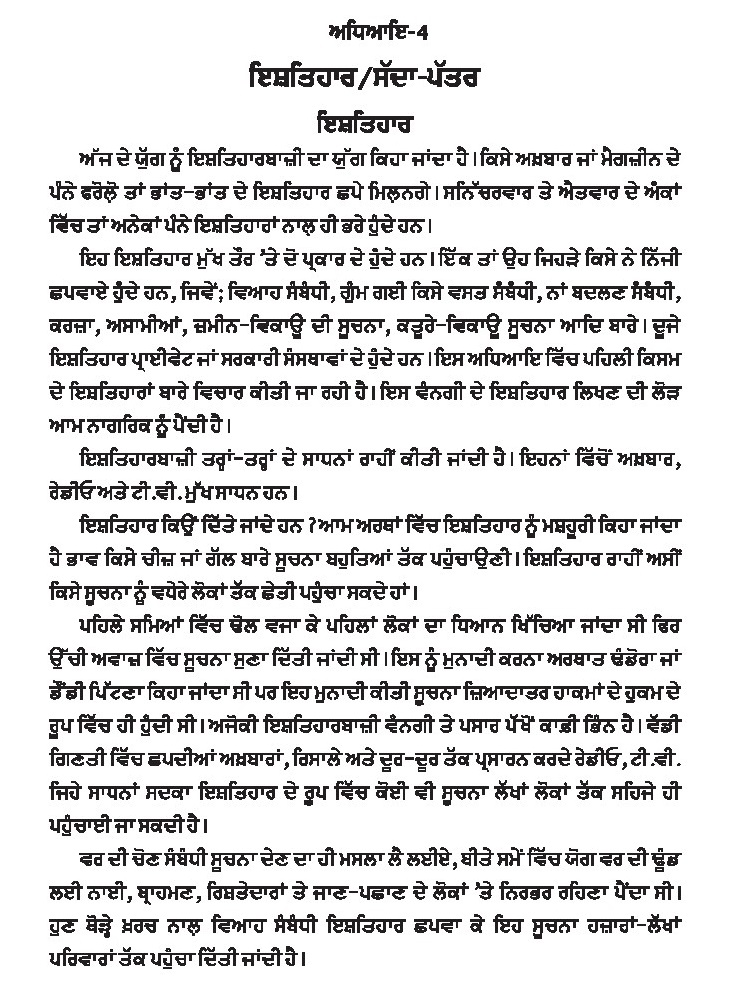 ਅਧਿਆਇ-4
ਇਸ਼ਤਿਹਾਰ/ਸੱਦਾ-ਪੱਤਰ
ਇਸ਼ਤਿਹਾਰ
ਅੱਜ ਦੇ ਯੁੱਗ ਨੂੰ ਇਸ਼ਤਿਹਾਰਬਾਜ਼ੀ ਦਾ ਯੁੱਗ ਕਿਹਾ ਜਾਂਦਾ ਹੈ। ਕਿਸੇ ਅਖ਼ਬਾਰ ਜਾਂ ਮੈਗਜ਼ੀਨ ਦੇ
ਪੰਨੇ ਫਰੋਲ਼ੋ ਤਾਂ ਭਾਂਤ-ਭਾਂਤ ਦੇ ਇਸ਼ਤਿਹਾਰ ਛਪੇ ਮਿਲ਼ਨਗੇ। ਸਨਿੱਚਰਵਾਰ ਤੇ ਐਤਵਾਰ ਦੇ ਅੰਕਾਂ
ਵਿੱਚ ਤਾਂ ਅਨੇਕਾਂ ਪੰਨੇ ਇਸ਼ਤਿਹਾਰਾਂ ਨਾਲ਼ ਹੀ ਭਰੇ ਹੁੰਦੇ ਹਨ।
ਇਹ ਇਸ਼ਤਿਹਾਰ ਮੁੱਖ ਤੌਰ ’ਤੇ ਦੋ ਪ੍ਰਕਾਰ ਦੇ ਹੁੰਦੇ ਹਨ। ਇੱਕ ਤਾਂ ਉਹ ਜਿਹੜੇ ਕਿਸੇ ਨੇ ਨਿੱਜੀ
ਛਪਵਾਏ ਹੁੰਦੇ ਹਨ, ਜਿਵੇਂ; ਵਿਆਹ ਸੰਬੰਧੀ, ਗੁੰਮ ਗਈ ਕਿਸੇ ਵਸਤ ਸੰਬੰਧੀ, ਨਾਂ ਬਦਲਣ ਸੰਬੰਧੀ,
ਕਰਜ਼ਾ, ਅਸਾਮੀਆਂ, ਜ਼ਮੀਨ-ਵਿਕਾਊ ਦੀ ਸੂਚਨਾ, ਕਤੂਰੇ-ਵਿਕਾਊ ਸੂਚਨਾ ਆਦਿ ਬਾਰੇ। ਦੂਜੇ
ਇਸ਼ਤਿਹਾਰ ਪ੍ਰਾਈਵੇਟ ਜਾਂ ਸਰਕਾਰੀ ਸੰਸਥਾਵਾਂ ਦੇ ਹੁੰਦੇ ਹਨ। ਇਸ ਅਧਿਆਇ ਵਿੱਚ ਪਹਿਲੀ ਕਿਸਮ
ਦੇ ਇਸ਼ਤਿਹਾਰਾਂ ਬਾਰੇ ਵਿਚਾਰ ਕੀਤੀ ਜਾ ਰਹੀ ਹੈ। ਇਸ ਵੰਨਗੀ ਦੇ ਇਸ਼ਤਿਹਾਰ ਲਿਖਣ ਦੀ ਲੋੜ
ਆਮ ਨਾਗਰਿਕ ਨੂੰ ਪੈਂਦੀ ਹੈ।
ਇਸ਼ਤਿਹਾਰਬਾਜ਼ੀ ਤਰ੍ਹਾਂ-ਤਰ੍ਹਾਂ ਦੇ ਸਾਧਨਾਂ ਰਾਹੀਂ ਕੀਤੀ ਜਾਂਦੀ ਹੈ। ਇਹਨਾਂ ਵਿੱਚੋਂ ਅਖ਼ਬਾਰ,
ਰੇਡੀਓ ਅਤੇ ਟੀ.ਵੀ. ਮੁੱਖ ਸਾਧਨ ਹਨ।
ਇਸ਼ਤਿਹਾਰ ਕਿਉਂ ਦਿੱਤੇ ਜਾਂਦੇ ਹਨ ? ਆਮ ਅਰਥਾਂ ਵਿੱਚ ਇਸ਼ਤਿਹਾਰ ਨੂੰ ਮਸ਼ਹੂਰੀ ਕਿਹਾ ਜਾਂਦਾ
ਹੈ ਭਾਵ ਕਿਸੇ ਚੀਜ਼ ਜਾਂ ਗੱਲ ਬਾਰੇ ਸੂਚਨਾ ਬਹੁਤਿਆਂ ਤੱਕ ਪਹੁੰਚਾਉਣੀ। ਇਸ਼ਤਿਹਾਰ ਰਾਹੀਂ ਅਸੀਂ
ਕਿਸੇ ਸੂਚਨਾ ਨੂੰ ਵਧੇਰੇ ਲੋਕਾਂ ਤੱਕ ਛੇਤੀ ਪਹੁੰਚਾ ਸਕਦੇ ਹਾਂ।
ਪਹਿਲੇ ਸਮਿਆਂ ਵਿੱਚ ਢੋਲ ਵਜਾ ਕੇ ਪਹਿਲਾਂ ਲੋਕਾਂ ਦਾ ਧਿਆਨ ਖਿੱਚਿਆ ਜਾਂਦਾ ਸੀ ਫਿਰ
ਉੱਚੀ ਅਵਾਜ਼ ਵਿੱਚ ਸੂਚਨਾ ਸੁਣਾ ਦਿੱਤੀ ਜਾਂਦੀ ਸੀ। ਇਸ ਨੂੰ ਮੁਨਾਦੀ ਕਰਨਾ ਅਰਥਾਤ ਢੰਡੋਰਾ ਜਾਂ
ਡੌਂਡੀ ਪਿੱਟਣਾ ਕਿਹਾ ਜਾਂਦਾ ਸੀ ਪਰ ਇਹ ਮੁਨਾਦੀ ਕੀਤੀ ਸੂਚਨਾ ਜ਼ਿਆਦਾਤਰ ਹਾਕਮਾਂ ਦੇ ਹੁਕਮ ਦੇ
ਰੂਪ ਵਿੱਚ ਹੀ ਹੁੰਦੀ ਸੀ। ਅਜੋਕੀ ਇਸ਼ਤਿਹਾਰਬਾਜ਼ੀ ਵੰਨਗੀ ਤੇ ਪਸਾਰ ਪੱਖੋਂ ਕਾਫ਼ੀ ਭਿੰਨ ਹੈ। ਵੱਡੀ
ਗਿਣਤੀ ਵਿੱਚ ਛਪਦੀਆਂ ਅਖ਼ਬਾਰਾਂ, ਰਿਸਾਲੇ ਅਤੇ ਦੂਰ-ਦੂਰ ਤੱਕ ਪ੍ਰਸਾਰਨ ਕਰਦੇ ਰੇਡੀਓ, ਟੀ.ਵੀ.
ਜਿਹੇ ਸਾਧਨਾਂ ਸਦਕਾ ਇਸ਼ਤਿਹਾਰ ਦੇ ਰੂਪ ਵਿੱਚ ਕੋਈ ਵੀ ਸੂਚਨਾ ਲੱਖਾਂ ਲੋਕਾਂ ਤੱਕ ਸਹਿਜੇ ਹੀ
ਪਹੁੰਚਾਈ ਜਾ ਸਕਦੀ ਹੈ।
ਵਰ ਦੀ ਚੋਣ ਸੰਬੰਧੀ ਸੂਚਨਾ ਦੇਣ ਦਾ ਹੀ ਮਸਲਾ ਲੈ ਲਈਏ, ਬੀਤੇ ਸਮੇਂ ਵਿੱਚ ਯੋਗ ਵਰ ਦੀ ਢੂੰਡ
ਲਈ ਨਾਈ, ਬ੍ਰਾਹਮਣ, ਰਿਸ਼ਤੇਦਾਰਾਂ ਤੇ ਜਾਣ-ਪਛਾਣ ਦੇ ਲੋਕਾਂ ’ਤੇ ਨਿਰਭਰ ਰਹਿਣਾ ਪੈਂਦਾ ਸੀ।
ਹੁਣ ਥੋੜ੍ਹੇ ਖ਼ਰਚ ਨਾਲ਼ ਵਿਆਹ ਸੰਬੰਧੀ ਇਸ਼ਤਿਹਾਰ ਛਪਵਾ ਕੇ ਇਹ ਸੂਚਨਾ ਹਜ਼ਾਰਾਂ-ਲੱਖਾਂ
ਪਰਿਵਾਰਾਂ ਤੱਕ ਪਹੁੰਚਾ ਦਿੱਤੀ ਜਾਂਦੀ ਹੈ।